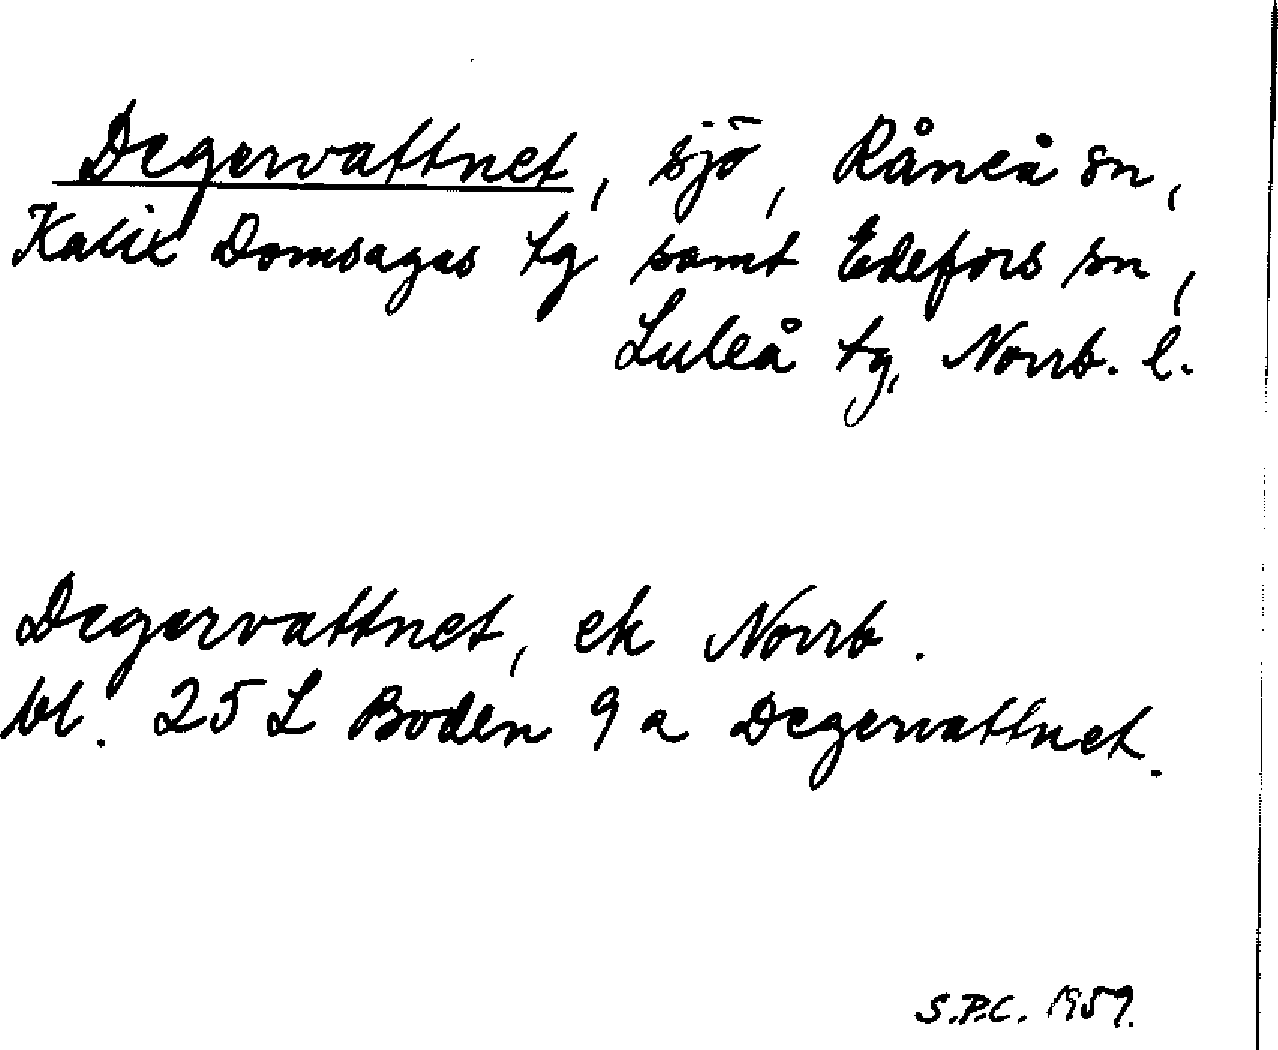 Degervattnet, sjö, Råneå sn,
Kalix Domsagas tg samt Edefors sn,
Luleå tg, Norrb. l.
Degervattnet, ek Norrb.
bl. 25 L Boden 9 a Degervattnet.
S.P.C. 1959.